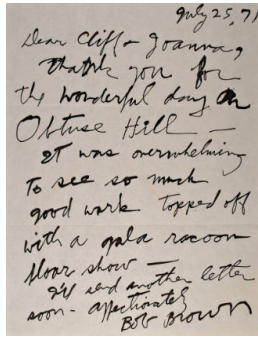 July 25, 71
Dear Cliff & Joanna,
Thank you for
the wonderful day on
Obtuse Hill —
It was overwhelming
To see so much
good work topped off
with a gala racoon
floar show —
I'll send another letter
soon - affectionately
Bob Brown